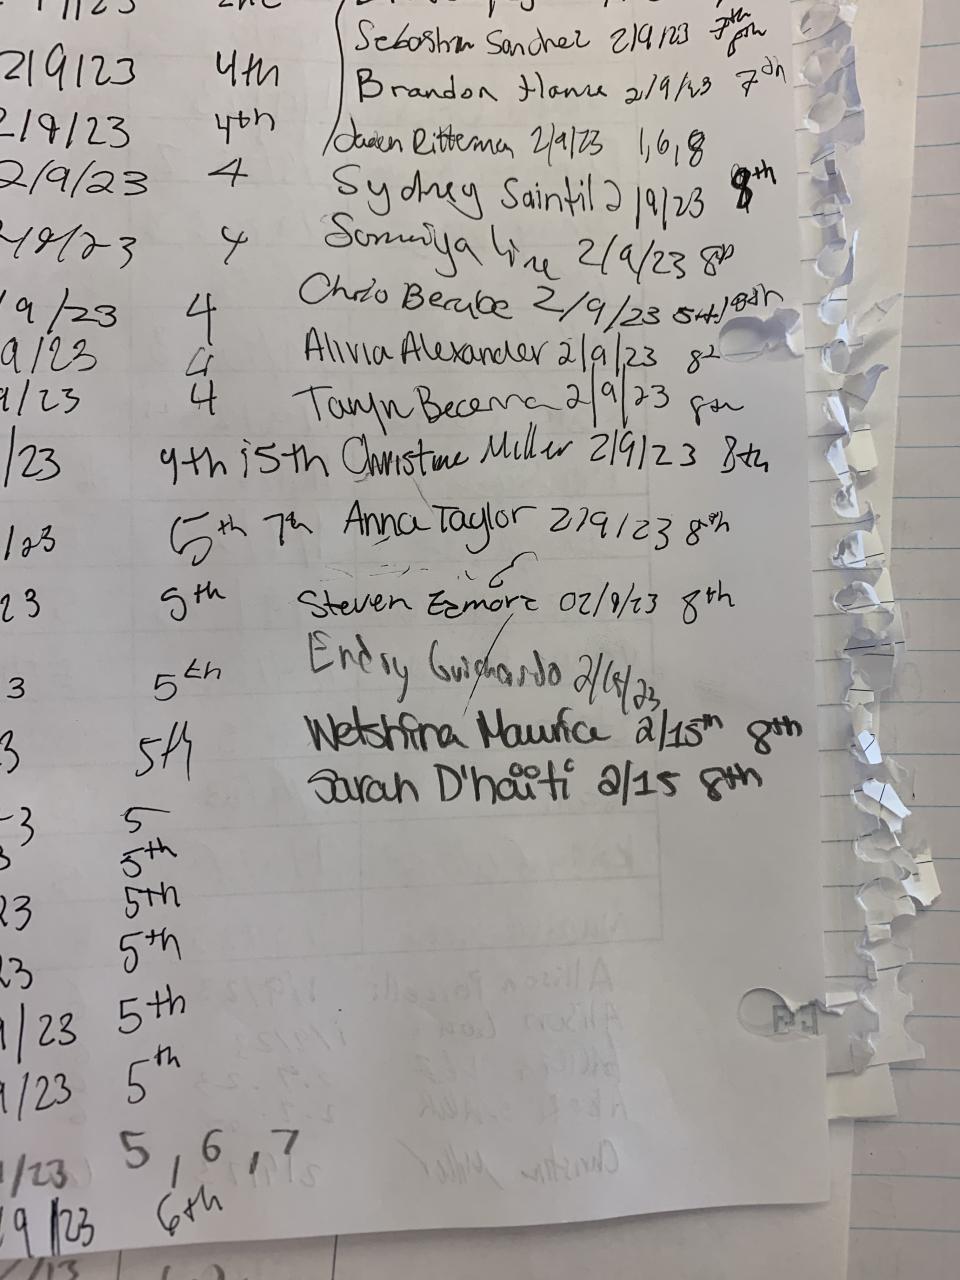 2/9/23 4th
2/9/23 4th
2/9/23 4
2/9/23 4
9/23 4
9/23 4
9/23 4
/23 4th 5th
/23 5th 7th
23 5th
3 5th
3 5th
3 5
3 5th
23 5th
23 5th
9/23 5th
9/23 5th
/23 5, 6, 7
9/23 6th
Sanchez 2/9/23 7th 8th
Brandon 2/9/23 7th
Ritterman 2/9/23 1,6,8
Sydney Saintil 2/9/23 8th
2/9/23 8th
Berube 2/9/23 5th/8th
Alivia Alexander 2/9/23 8
Taryn Becerra 2/9/23 8th
Christine Miller 2/9/23 8th
Anna Taylor 2/9/23 8th
Steven 02/9/23 8th
Endry Guichardo
Wetshfina Maurice 2/15th 8th
Sarah D'haïti 2/15 8th